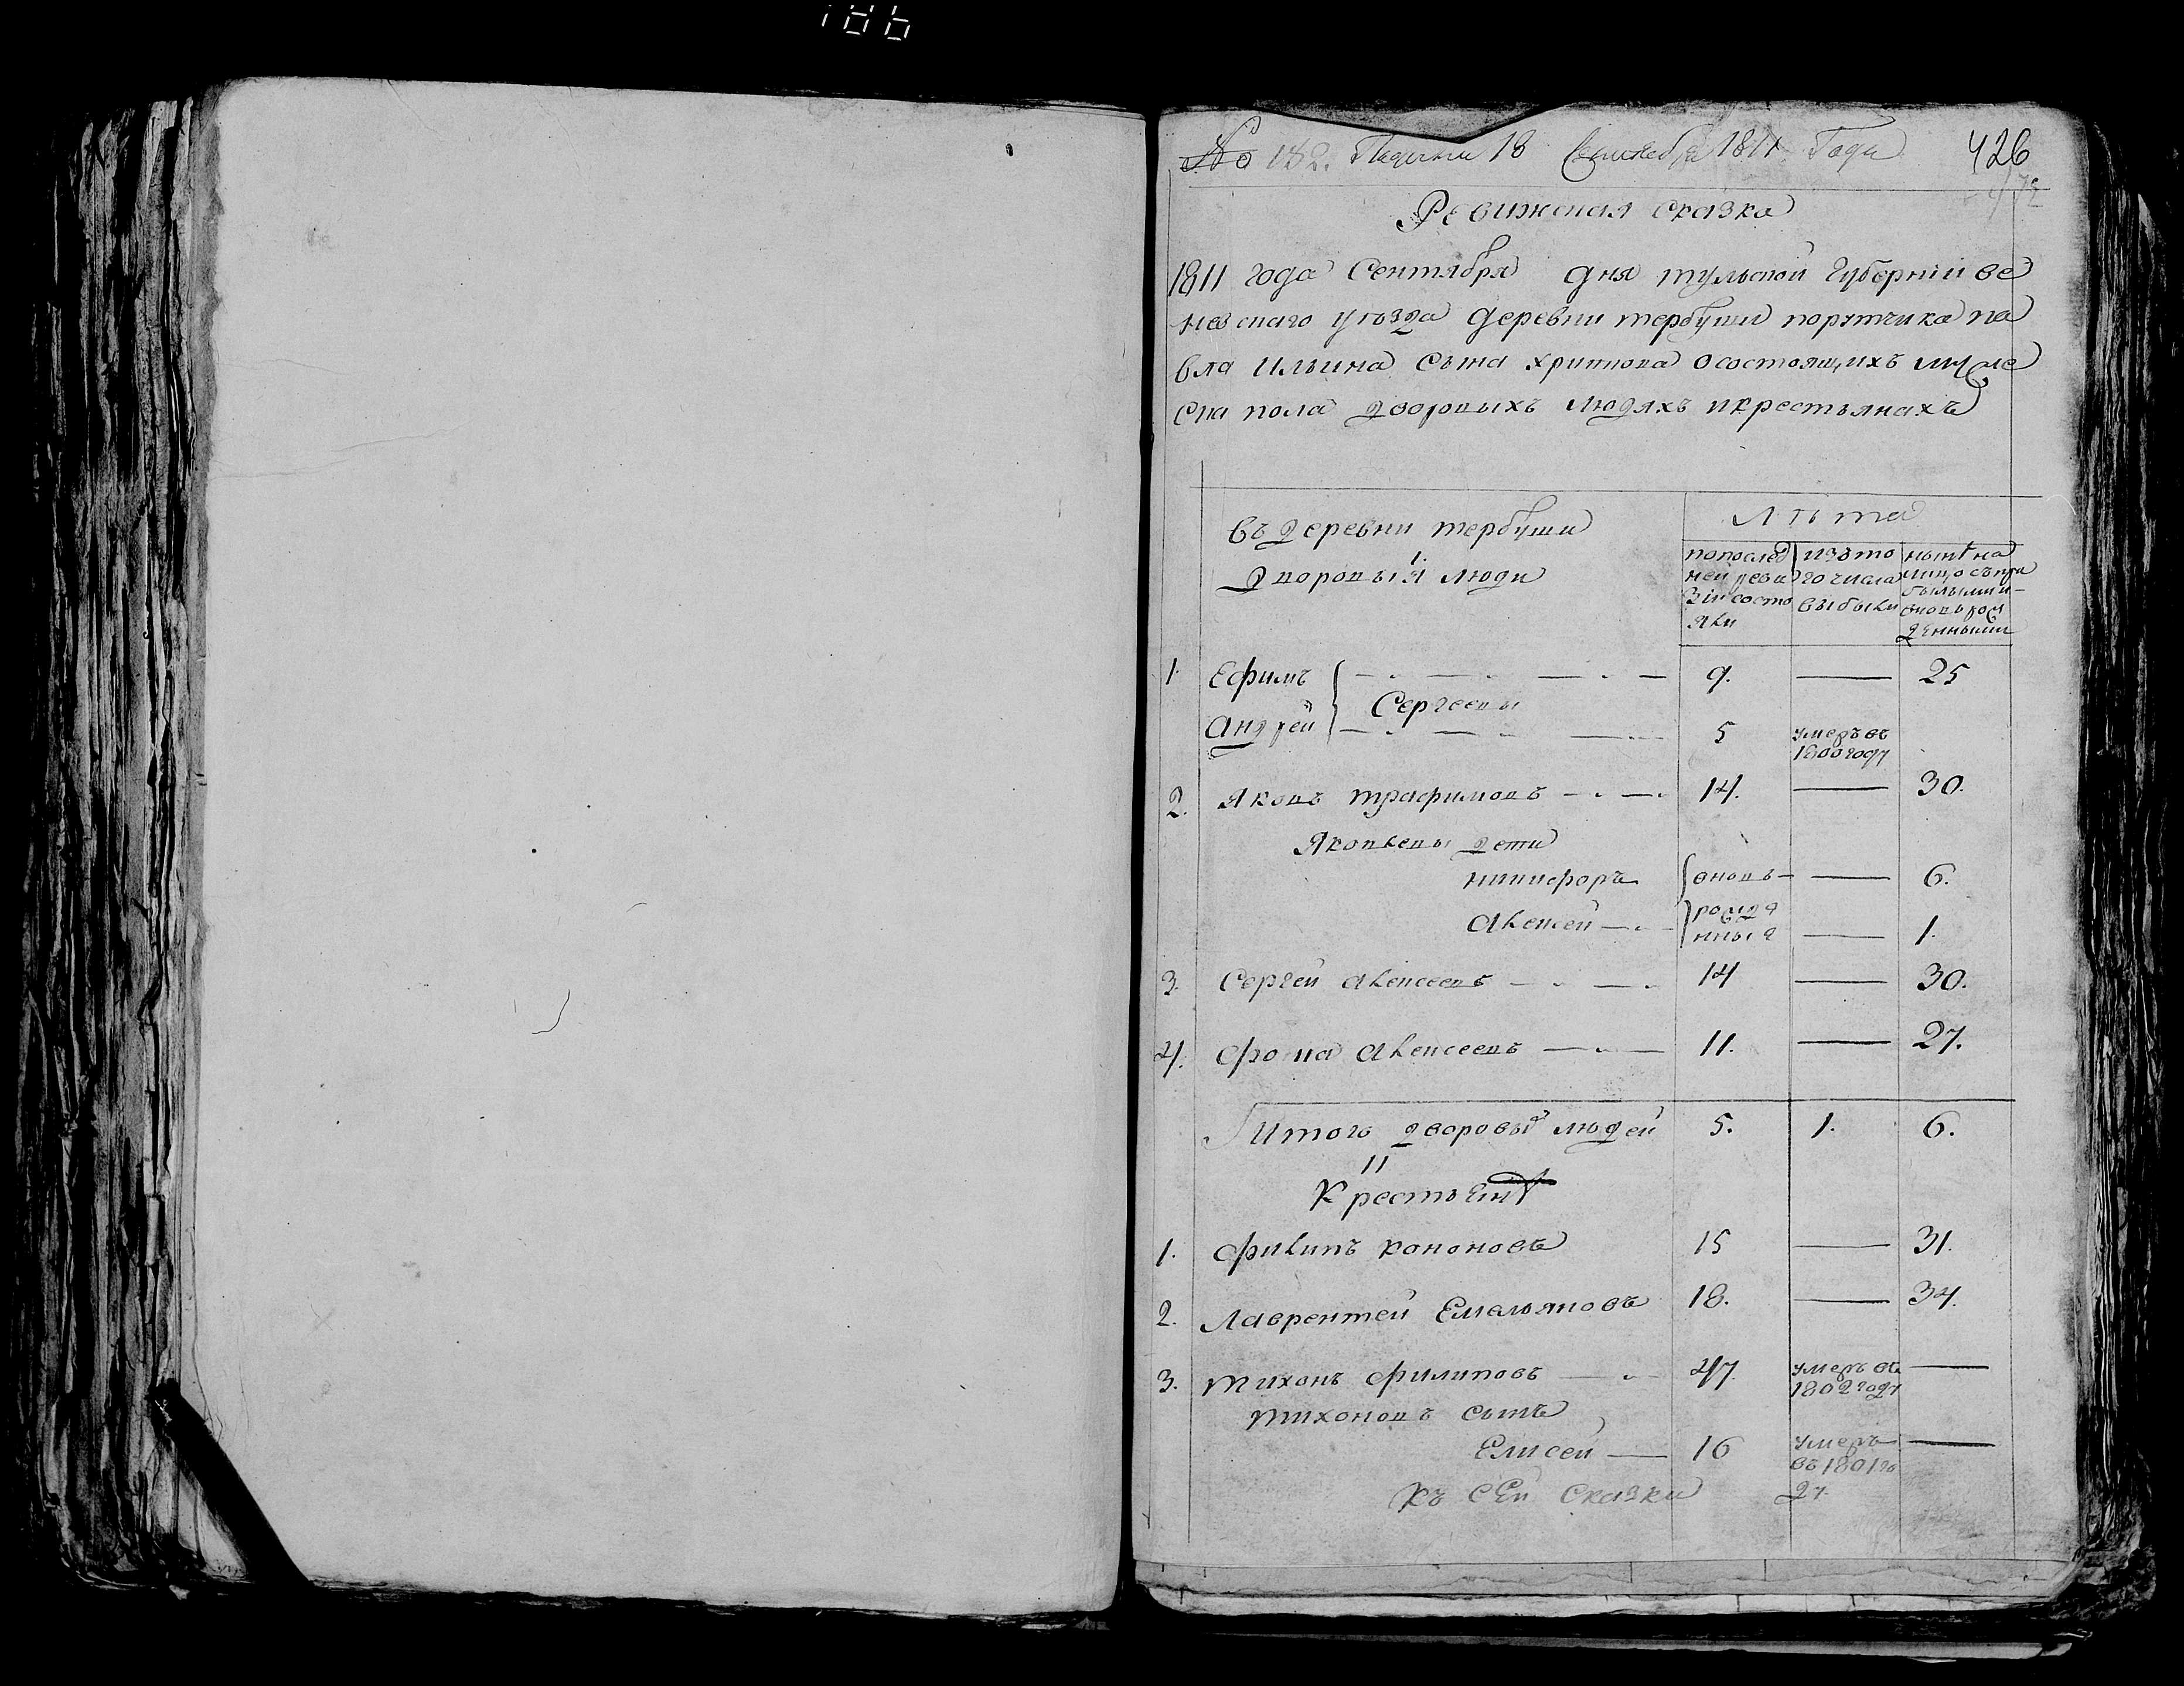 186
№ 182. Подачи 18 Сентебря 1811 Года 426
Ревижская сказка
1811 года Сентября дня тульской губернии ве
невскаго уъзда деревни тербуши порутчика па
вла Ильина сына хрипкова о состоящихъ муже
ска пола дворовыхъ людяхъ и крестьянахъ
въ деревни тербуши
Лъта
1.
дворовыя люди
попослед ней реви зіи состо яли
изъ то го числа выбыли
нынъ на лицо съ при былыми и вновь рож денными
1. Ефимъ 9. — 25
Сергеевы
Андрей 5 умеръ въ 1800 году
2. Яковъ трафимовъ 14. — 30.
Яковлевы дети
никифоръ вновь — 6.
Алексей рожде нныя — 1.
3. Сергей Алексеевъ 14 — 30.
4. фома Алексеевъ 11. — 27.
Итого дворовы людей 5. 1. 6.
11
Крестьянъ
1. филипъ кононовъ 15 — 31.
2. Лаврентей Емельяновъ 18. — 34.
3. тихонъ филиповъ 47. умеръ въ 1802 году —
тихоновъ сынъ
Елисей — 16 умеръ въ 1801 го ду —
Къ сей сказки